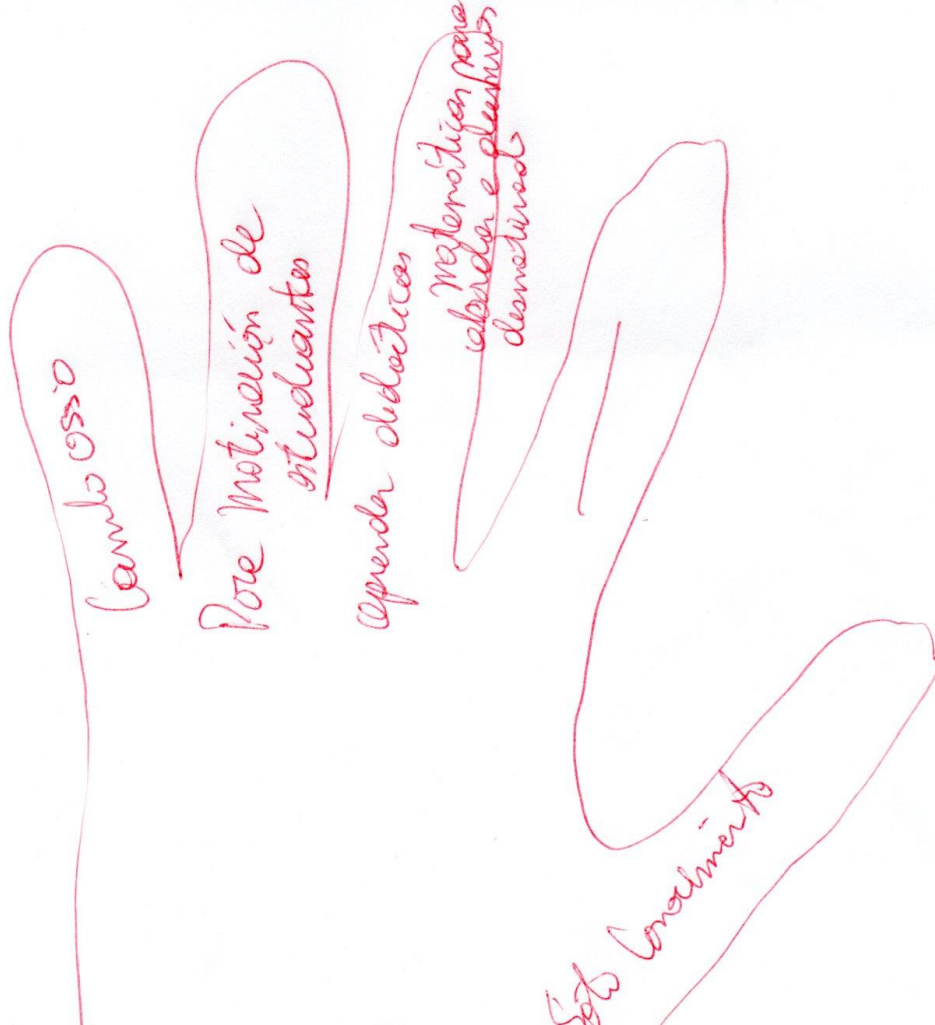 Camilo Ossio
Pore Motivación de
estudiantes
aprender didácticas
matemáticas para
abordar e
desmotivado
Solo Conocimiento